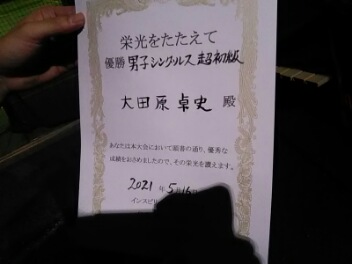 栄光をたたえて
優勝 男子シングルス 超初級
大田原卓史 殿
あなたは本大会において頭書の通り、優秀な
成績をおさめましたので、その栄光を讃えます。
2021年5月16
インスピ